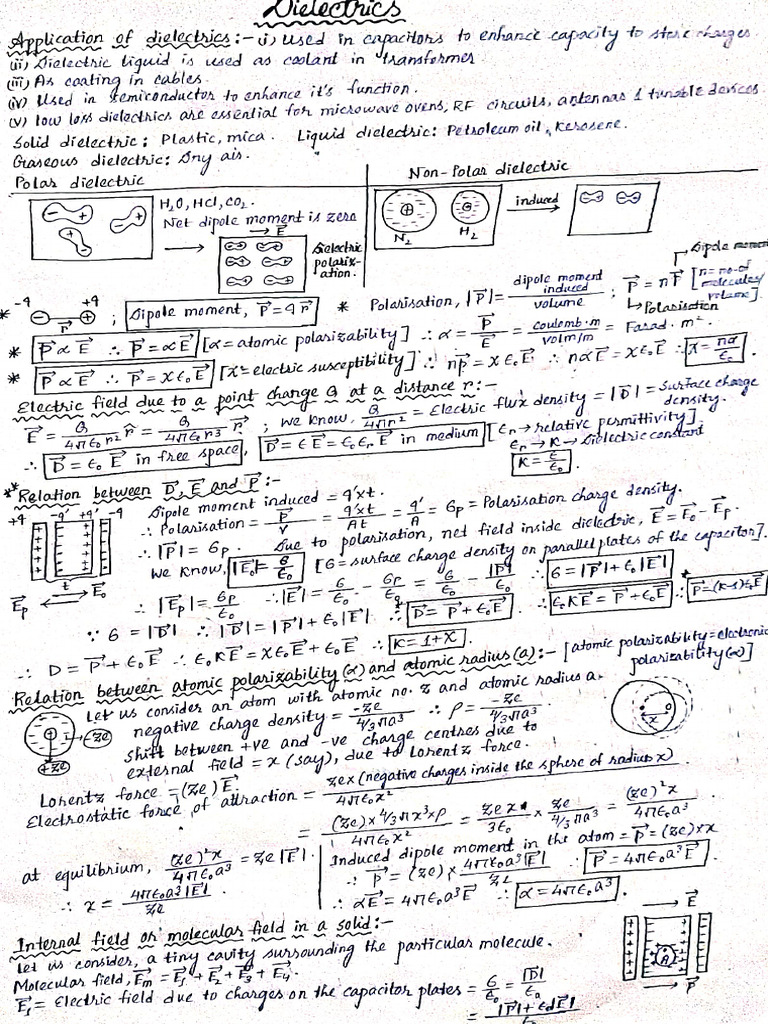 Dielectrics
Application of dielectrics:- (i) Used in capacitors to enhance capacity to store charges.
(ii) Dielectric liquid is used as coolant in transformer
(iii) As coating in cables.
(iv) Used in semiconductor to enhance it's function.
(v) low loss dielectrics are essential for microwave ovens, RF circuits, antennas & tunable devices.
Solid dielectric: Plastic, mica. Liquid dielectric: Petroleum oil, Kerosene.
Gaseous dielectric: Dry air.
Polar dielectric
Non-Polar dielectric
H₂O, HCl, CO₂.
Net dipole moment is zero
E⃗
Dielectric polariz-ation.
N₂ H₂
induced
* -q +q r⃗ ; Dipole moment, P⃗ = q r⃗
* Polarisation, |P⃗| = dipole moment induced / volume ; P⃗ = nP⃗ [n = no. of molecules/volume].
Dipole moment
Polarisation
* P⃗ ∝ E⃗ ∴ P⃗ = αE⃗ [α = atomic polarizability] ∴ α = P⃗/E⃗ = Coulomb·m / volm/m = Farad·m².
* P⃗ ∝ E⃗ ∴ P⃗ = χε₀E⃗ [χ = electric susceptibility] ∴ nP⃗ = χε₀E⃗ ∴ nαE⃗ = χε₀E⃗ ∴ χ = nα/ε₀
Electric field due to a point charge Q at a distance r:-
E⃗ = Q/4πε₀r² r̂ = Q/4πε₀r³ r⃗ ; We know, Q/4πr² = Electric flux density = |D⃗| = Surface charge density.
∴ D⃗ = ε₀E⃗ in free space, D⃗ = εE⃗ = ε₀εᵣE⃗ in medium [εᵣ → relative permittivity]
εᵣ → K → Dielectric constant
K = ε/ε₀.
** Relation between D⃗, E⃗ and P⃗:-
+q -q' +q' -q
t
E⃗p E⃗₀
Dipole moment induced = q'×t.
∴ Polarisation = P⃗/v = q'×t/At = q'/A = σp = Polarisation charge density.
∴ |P⃗| = σp. Due to polarisation, net field inside dielectric, E⃗ = E⃗₀ - E⃗p.
We know, |E⃗₀| = σ/ε₀ [σ = surface charge density on parallel plates of the capacitor].
∴ |E⃗p| = σp/ε₀ ∴ |E⃗| = σ/ε₀ - σp/ε₀ = σ/ε₀ - |P⃗|/ε₀ ∴ σ = |P⃗| + ε₀|E⃗|
∵ σ = |D⃗| ∴ |D⃗| = |P⃗| + ε₀|E⃗| ∴ D⃗ = P⃗ + ε₀E⃗ ∴ ε₀KE⃗ = P⃗ + ε₀E⃗ ∴ P⃗ = (K-1)ε₀E⃗
∴ D = P⃗ + ε₀E⃗ ∴ ε₀KE⃗ = χε₀E⃗ + ε₀E⃗ ∴ K = 1 + χ.
Relation between atomic polarizability (α) and atomic radius (a):- [atomic polarizability = electronic polarizability (α)]
Let us consider an atom with atomic no. z and atomic radius a.
negative charge density = -ze / 4/3πa³ ∴ ρ = -ze / 4/3πa³.
-ze
+ze
x
shift between +ve and -ve charge centres due to
external field = x (say), due to Lorentz force.
Lorentz force = (ze)E⃗.
Electrostatic force of attraction = ze × (negative charges inside the sphere of radius x) / 4πε₀x²
= (ze) × 4/3πx³ × ρ / 4πε₀x² = zex/3ε₀ × ze / 4/3πa³ = (ze)²x / 4πε₀a³
at equilibrium, (ze)²x / 4πε₀a³ = ze|E⃗|.
∴ x = 4πε₀a³|E⃗| / ze
Induced dipole moment in the atom = P⃗ = (ze) × x
∴ P⃗ = (ze) × 4πε₀a³|E⃗| / ze ∴ P⃗ = 4πε₀a³E⃗.
∴ αE⃗ = 4πε₀a³E⃗ ∴ α = 4πε₀a³.
Internal field or molecular field in a solid:-
Let us consider, a tiny cavity surrounding the particular molecule.
Molecular field, E⃗m = E⃗₁ + E⃗₂ + E⃗₃ + E⃗₄.
E⃗₁ = Electric field due to charges on the capacitor plates = σ/ε₀ = |D⃗|/ε₀
= |P⃗| + ε₀|E⃗| / ε₀
E⃗
A
P⃗